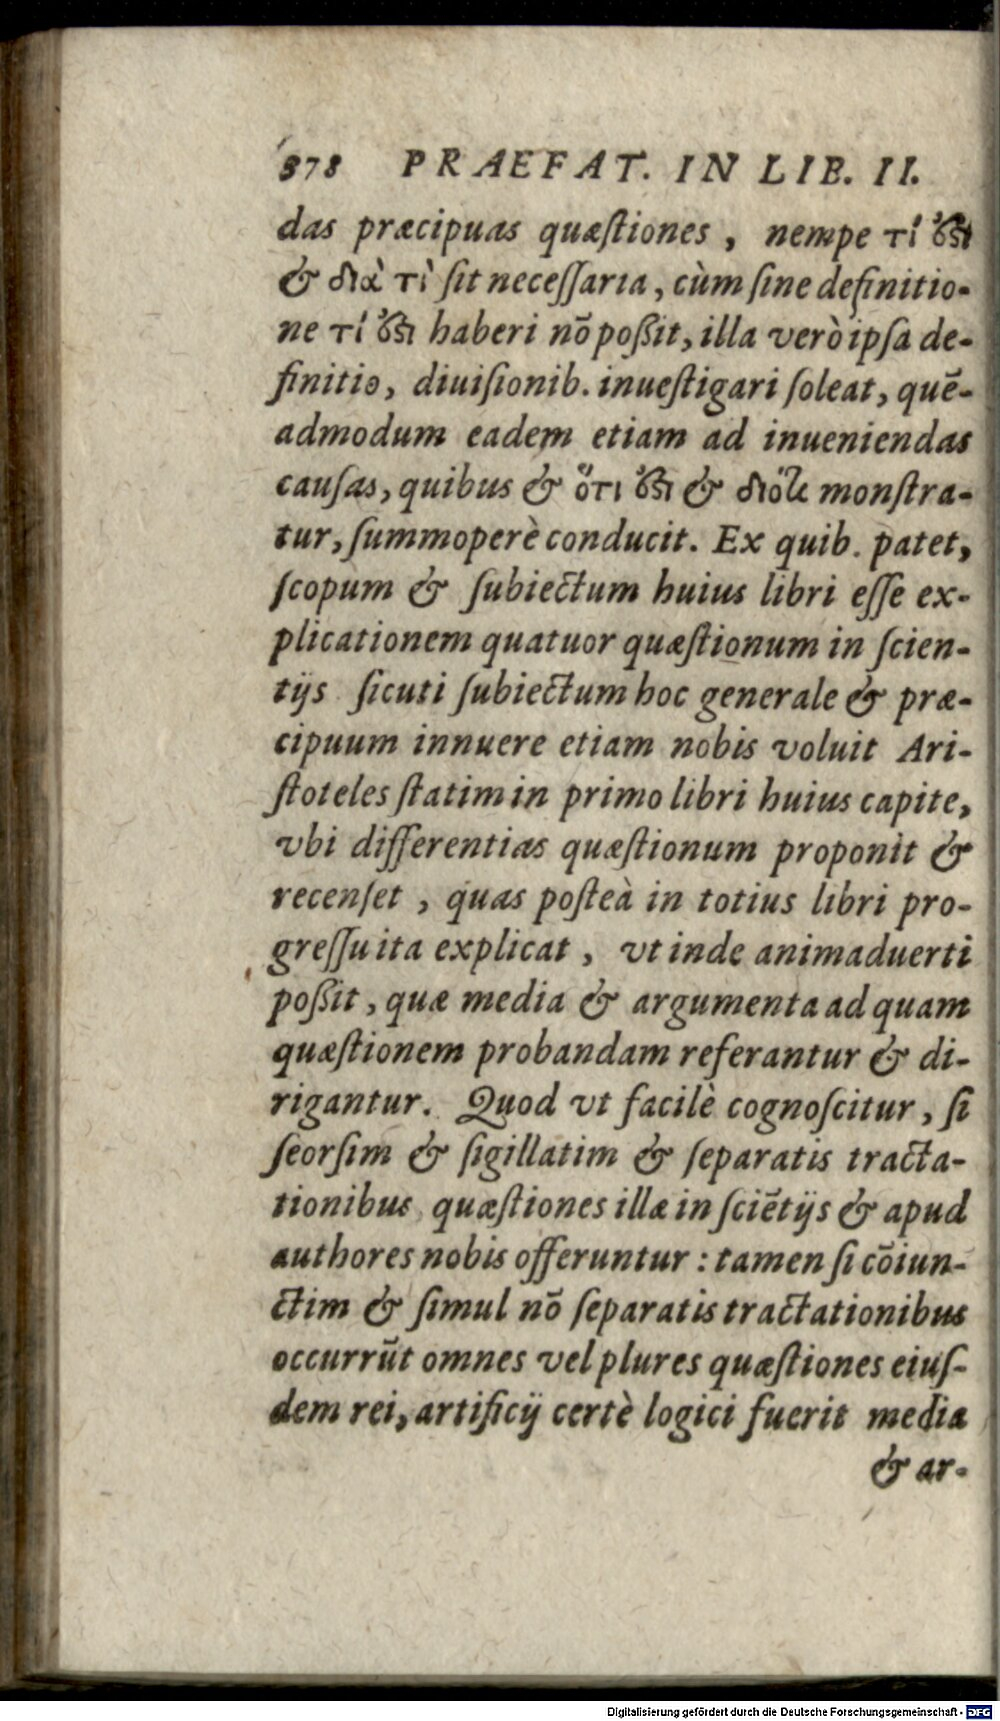 378 PRAEFAT. IN LIB. II.
das præcipuas quæſtiones, nempe τί ἐϛι
& διὰ τὶ ſit neceſſaria, cùm ſine definitio-
ne τί ἐϛι haberi nō poßit, illa verò ipſa de-
finitio, diuiſionib. inueſtigari ſoleat, quē-
admodum eadem etiam ad inueniendas
cauſas, quibus & ὅτι ἐϛι & διότι monſtra-
tur, ſummoperè conducit. Ex quib. patet,
ſcopum & ſubiectum huius libri eſſe ex-
plicationem quatuor quæſtionum in ſcien-
tijs ſicuti ſubiectum hoc generale & præ-
cipuum innuere etiam nobis voluit Ari-
ſtoteles ſtatim in primo libri huius capite,
vbi differentias quæſtionum proponit &
recenſet, quas poſteà in totius libri pro-
greſſu ita explicat, vt inde animaduerti
poßit, quæ media & argumenta ad quam
quæſtionem probandam referantur & di-
rigantur. Quod vt facilè cognoſcitur, ſi
ſeorſim & ſigillatim & ſeparatis tracta-
tionibus quæſtiones illæ in ſciētijs & apud
authores nobis offeruntur: tamen ſi cōiun-
ctim & ſimul nō ſeparatis tractationibus
occurrūt omnes vel plures quæſtiones eiuſ-
dem rei, artificij certè logici fuerit media
& ar-
Digitalisierung gefördert durch die Deutsche Forschungsgemeinschaft - DFG